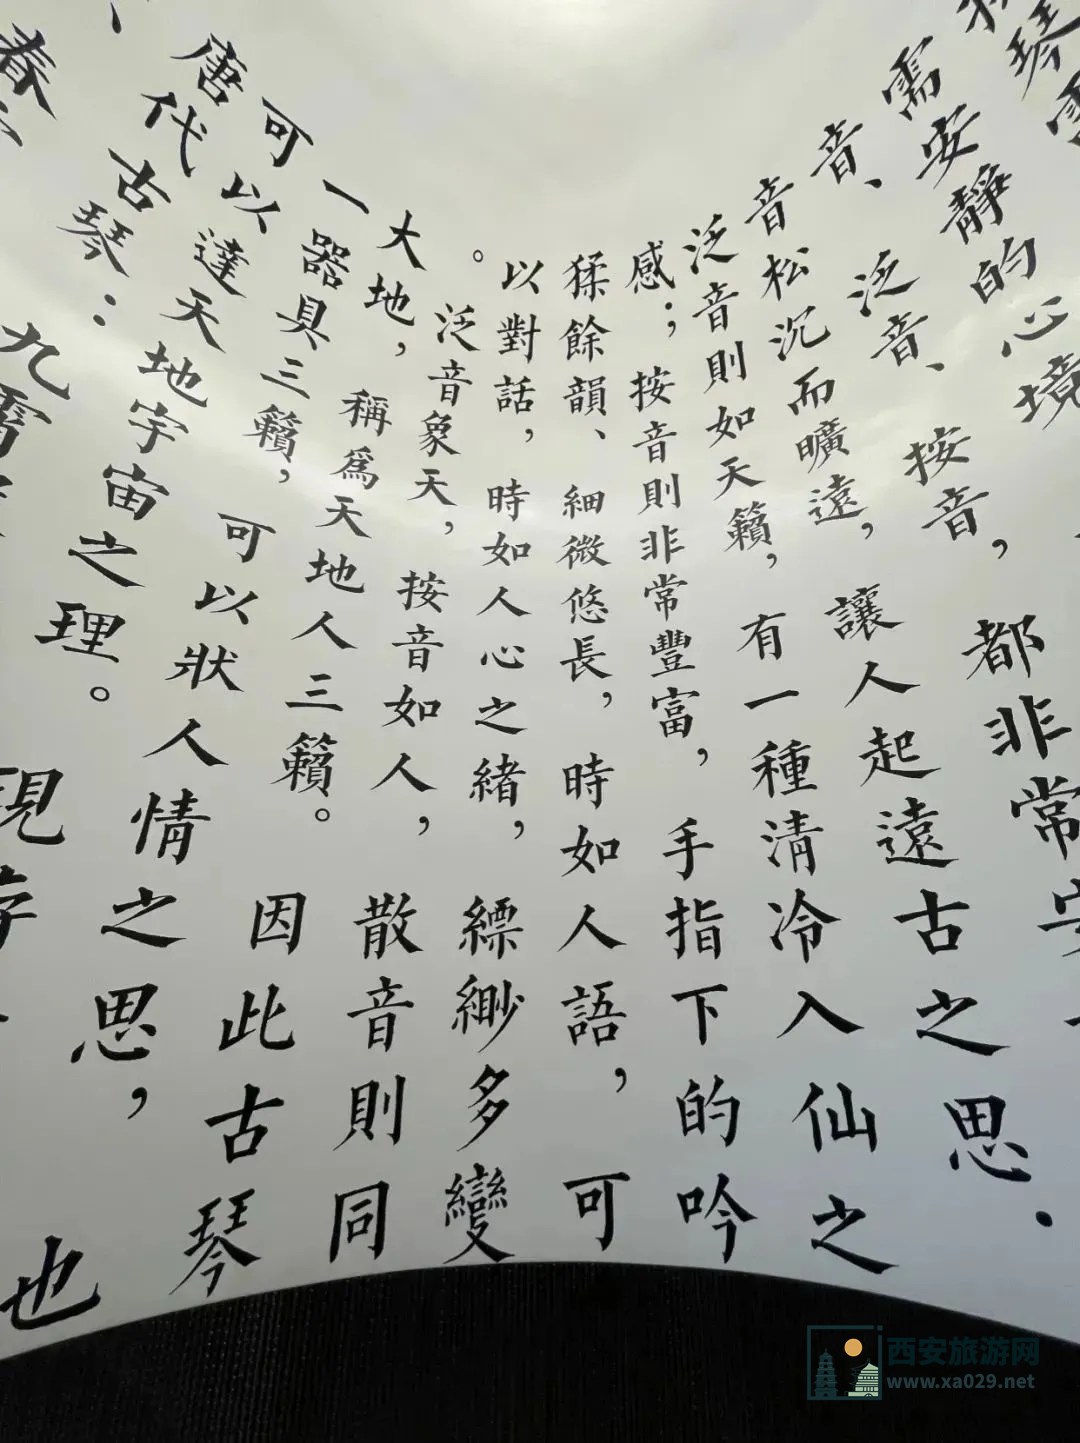 琴
需安靜的心境
音、泛音、按音，都非常安
音松沉而曠遠，讓人起遠古之思.
泛音則如天籟，有一種清冷入仙之
感；按音則非常豐富，手指下的吟
猱餘韻、細微悠長，時如人語，可
以對話，時如人心之緒，縹緲多變
。泛音象天，按音如人，散音則同
大地，稱爲天地人三籟。因此古琴
一器具三籟，可以狀人情之思，也
可以達天地宇宙之理。現存
唐代古琴：九霄
春
西安旅游网
www.xa029.net